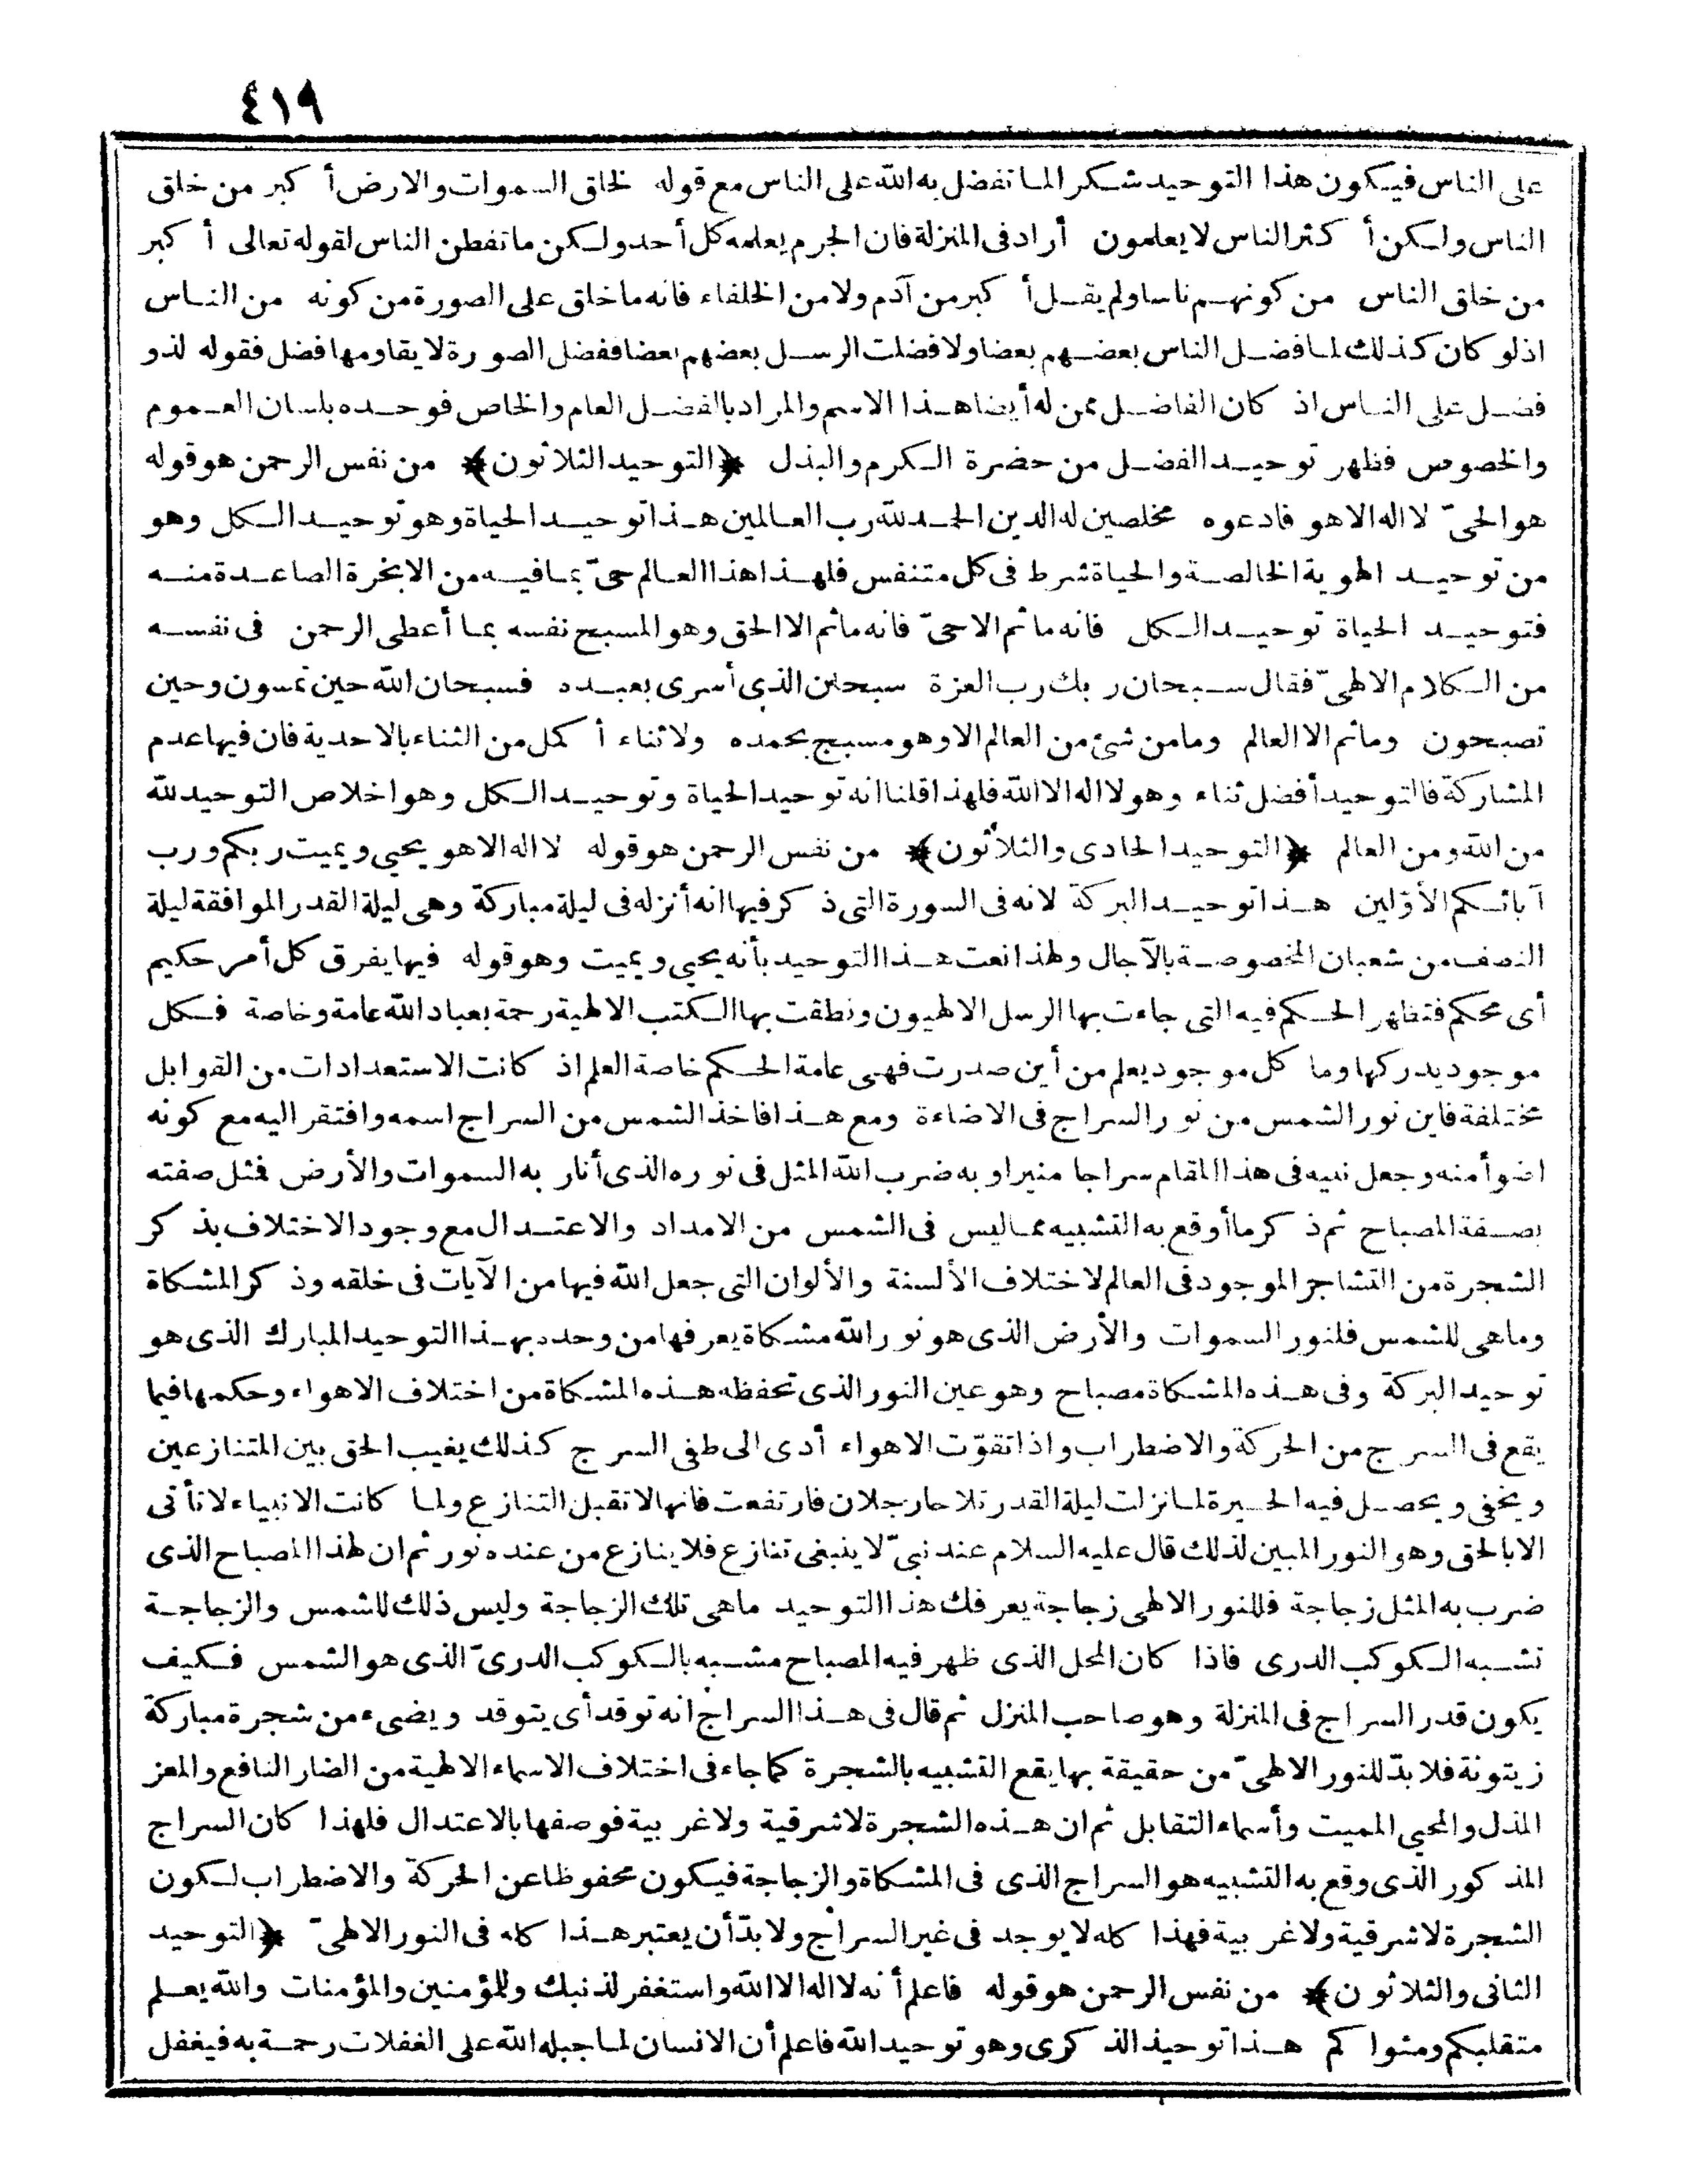 ٤١٩
على الناس فيكون هذا التوحيد شكرا لما تفضل به الله على الناس مع قوله لخلق السموات والارض أكبر من خلق
الناس ولكن أكثر الناس لا يعلمون أراد فى المنزلة فان الجرم يعلمه كل أحد ولكن ما تفطن الناس لقوله تعالى أكبر
من خلق الناس من كونهم ناسا ولم يقل أكبر من آدم ولا من الخلفاء فانه ما خلق على الصورة من كونه من الناس
اذ لو كان كذلك لما فضل الناس بعضهم بعضا ولا فضلت الرسل بعضهم بعضا ففضل الصورة لا يقاومها فضل فقوله لذو
فضل على الناس اذ كان الفاضل ممن له أيضا هذا الاسم والمراد بالفضل العام والخاص فوحده بلسان العموم
والخصوص فظهر توحيد الفضل من حضرة الكرم والبذل ﴿التوحيد الثلاثون﴾ من نفس الرحمن هو قوله
هو الحىّ لا اله الا هو فادعوه مخلصين له الدين الحمد لله رب العالمين هذا توحيد الحياة وهو توحيد الكل وهو
من توحيد الهوية الخالصة والحياة شرط فى كل متنفس فلهذا هذا العالم حىّ بما فيه من الابخرة الصاعدة منه
فتوحيد الحياة توحيد الكل فانه ما ثم الا حىّ فانه ما ثم الا الحق وهو المسبح نفسه بما أعطى الرحمن فى نفسه
من الكلام الالهىّ فقال سبحان ربك رب العزة سبحان الذى أسرى بعبده فسبحان الله حين تمسون وحين
تصبحون وما ثم الا العالم وما من شئ من العالم الا وهو مسبح بحمده ولا ثناء أكمل من الثناء بالاحدية فان فيها عدم
المشاركة فالتوحيد أفضل ثناء وهو لا اله الا الله فلهذا قلنا انه توحيد الحياة وتوحيد الكل وهو اخلاص التوحيد لله
من الله ومن العالم ﴿التوحيد الحادى والثلاثون﴾ من نفس الرحمن هو قوله لا اله الا هو يحيي ويميت ربكم ورب
آبائكم الأوّلين هذا توحيد البركة لانه فى السورة التى ذكر فيها انه أنزله فى ليلة مباركة وهى ليلة القدر الموافقة ليلة
النصف من شعبان المخصوصة بالآجال ولهذا نعت هذا التوحيد بأنه يحيي ويميت وهو قوله فيها يفرق كل أمر حكيم
أى محكم فتظهر الحكم فيه التى جاءت بها الرسل الالهيون ونطقت بها الكتب الالهية رحمة بعباد الله عامة وخاصة فكل
موجود يدركها وما كل موجود يعلم من أين صدرت فهى عامة الحكم خاصة العلم اذ كانت الاستعدادات من القوابل
مختلفة فاين نور الشمس من نور السراج فى الاضاءة ومع هذا فاخذ الشمس من السراج اسمه وافتقر اليه مع كونه
اضوأ منه وجعل نبيه فى هذا المقام سراجا منيرا وبه ضرب الله المثل فى نوره الذى أنار به السموات والأرض فمثل صفته
بصفة المصباح ثم ذكر ما أوقع به التشبيه مما ليس فى الشمس من الامداد والاعتدال مع وجود الاختلاف بذكر
الشجرة من التشاجر الموجود فى العالم لاختلاف الألسنة والألوان التى جعل الله فيها من الآيات فى خلقه وذكر المشكاة
وما هى للشمس فلنور السموات والأرض الذى هو نور الله مشكاة يعرفها من وحده بهذا التوحيد المبارك الذى هو
توحيد البركة وفى هذه المشكاة مصباح وهو عين النور الذى تحفظه هذه المشكاة من اختلاف الاهواء وحكمها فيما
يقع فى السرج من الحركة والاضطراب واذا تقوّت الاهواء أدى الى طفى السرج كذلك يغيب الحق بين المتنازعين
ويخفى ويحصل فيه الحيرة لما نزلت ليلة القدر تلاحا رجلان فارتفعت فانها لا تقبل التنازع ولما كانت الانبياء لا تأتى
الا بالحق وهو النور المبين لذلك قال عليه السلام عند نبىّ لا ينبغى تنازع فلا ينازع من عنده نور ثم ان لهذا المصباح الذى
ضرب به المثل زجاجة فللنور الالهى زجاجة يعرفك هذا التوحيد ما هى تلك الزجاجة وليس ذلك للشمس والزجاجة
تشبه الكوكب الدرى فاذا كان المحل الذى ظهر فيه المصباح مشبه بالكوكب الدرىّ الذى هو الشمس فكيف
يكون قدر السراج فى المنزلة وهو صاحب المنزل ثم قال فى هذا السراج انه توقد أى يتوقد ويضىء من شجرة مباركة
زيتونة فلا بدّ للنور الالهىّ من حقيقة بها يقع التشبيه بالشجرة كما جاء فى اختلاف الاسماء الالهية من الضار النافع والمعز
المذل والمحيي المميت وأسماء التقابل ثم ان هذه الشجرة لا شرقية ولا غربية فوصفها بالاعتدال فلهذا كان السراج
المذكور الذى وقع به التشبيه هو السراج الذى فى المشكاة والزجاجة فيكون محفوظا عن الحركة والاضطراب لكون
الشجرة لا شرقية ولا غربية فهذا كله لا يوجد فى غير السراج ولا بدّ أن يعتبر هذا كله فى النور الالهىّ ﴿التوحيد
الثانى والثلاثون﴾ من نفس الرحمن هو قوله فاعلم أنه لا اله الا الله واستغفر لذنبك وللمؤمنين والمؤمنات والله يعلم
متقلبكم ومثواكم هذا توحيد الذكرى وهو توحيد الله فاعلم أن الانسان لما جبله الله على الغفلات رحمة به فيغفل